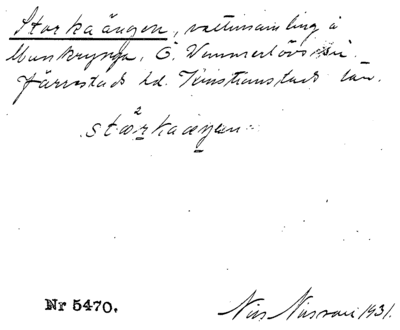 Storkaängen, vattensamling å
Munkrynga, Ö. Vemmerlövs sn.
Järrestads hd. Kristianstads län.
2
stærkaæŋen
Nr 5470.
Nils Nilsson 1931.